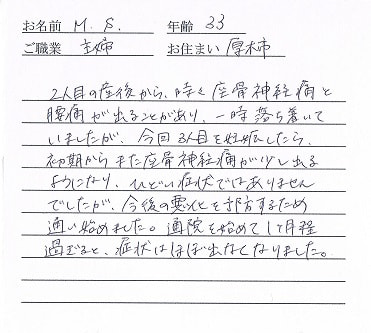 お名前 M. S. 年齢 33
ご職業 主婦 お住まい 厚木市
2人目の産後から、時々座骨神経痛と
腰痛が出ることがあり、一時落ち着いて
いましたが、今回3人目を妊娠したら、
初期からまた座骨神経痛が少し出る
ようになり、ひどい症状ではありません
でしたが、今後の悪化を予防するため
通い始めました。通院を始めて1ヶ月程
過ぎると、症状はほぼ出なくなりました。